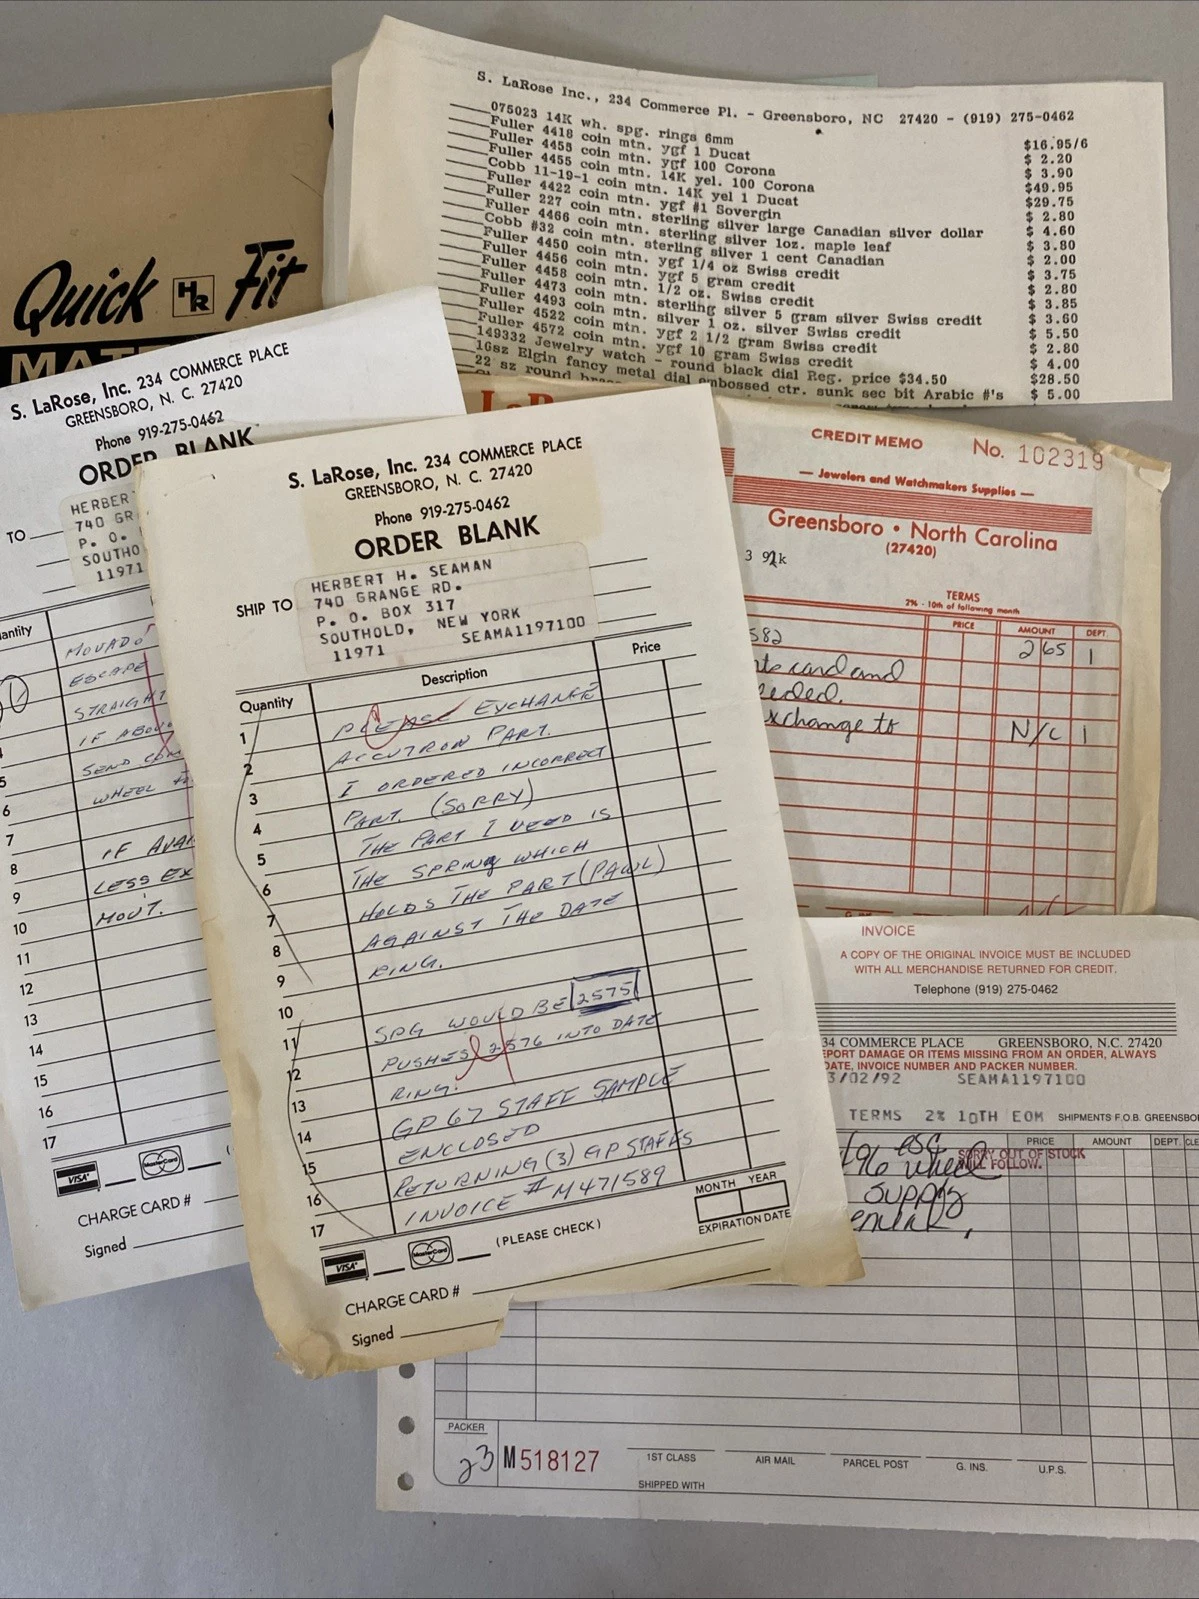 S. LaRose Inc., 234 Commerce Pl. - Greensboro, NC 27420 - (919) 275-0462
075023 14K wh. spg. rings 6mm $16.95/6
Fuller 4418 coin mtn. ygf 1 Ducat $ 2.20
Fuller 4455 coin mtn. ygf 100 Corona $ 3.90
Fuller 4455 coin mtn. 14K yel. 100 Corona $49.95
Cobb 11-19-1 coin mtn. 14K yel 1 Ducat $29.75
Fuller 4422 coin mtn. ygf #1 Sovergin $ 2.80
Fuller 227 coin mtn. sterling silver large Canadian silver dollar $ 4.60
Fuller 4466 coin mtn. sterling silver 1oz. maple leaf $ 3.80
Cobb #32 coin mtn. sterling silver 1 cent Canadian $ 2.00
Fuller 4450 coin mtn. ygf 1/4 oz Swiss credit $ 3.75
Fuller 4456 coin mtn. ygf 5 gram credit $ 2.80
Fuller 4458 coin mtn. 1/2 oz. Swiss credit $ 3.85
Fuller 4473 coin mtn. sterling silver 5 gram silver Swiss credit $ 3.60
Fuller 4493 coin mtn. silver 1 oz. silver Swiss credit $ 5.50
Fuller 4522 coin mtn. ygf 2 1/2 gram Swiss credit $ 2.80
Fuller 4572 coin mtn. ygf 10 gram Swiss credit $ 4.00
149332 Jewelry watch - round black dial Reg. price $34.50 $28.50
16sz Elgin fancy metal dial embossed ctr. sunk sec bit Arabic #'s $ 5.00
22 sz round
Quick HR Fit
MAT
S. LaRose, Inc. 234 COMMERCE PLACE
GREENSBORO, N. C. 27420
Phone 919-275-0462
ORDER BLANK
TO
HERBER
740 GR
P. O.
SOUTHO
11971
antity
MOVADO
ESCAPE
STRAIGHT
IF ABOV
SEND
WHEEL
IF AVAI
LESS EX
MOUT.
5
6
7
8
9
10
11
12
13
14
15
16
17
VISA
MasterCard
CHARGE CARD #
Signed
S. LaRose, Inc. 234 COMMERCE PLACE
GREENSBORO, N. C. 27420
Phone 919-275-0462
ORDER BLANK
SHIP TO
HERBERT H. SEAMAN
740 GRANGE RD.
P. O. BOX 317
SOUTHOLD, NEW YORK
11971 SEAMA1197100
Quantity Description Price
1 PLEASE EXCHANGE
2 ACCUTRON PART.
3 I ORDERED INCORRECT
4 PART. (SORRY)
5 THE PART I NEED IS
6 THE SPRING WHICH
7 HOLDS THE PART (PAWL)
8 AGAINST THE DATE
9 RING.
10
11 SPG WOULD BE 2575
12 PUSHES 2576 INTO DATE
13 RING.
14 GP 67 STAFF SAMPLE
15 ENCLOSED
16 RETURNING (3) GP STAFFS
17 INVOICE # M471589
VISA
MasterCard
(PLEASE CHECK)
MONTH YEAR
EXPIRATION DATE
CHARGE CARD #
Signed
CREDIT MEMO No. 102319
Jewelers and Watchmakers Supplies
Greensboro • North Carolina
(27420)
3 92k
TERMS
2% - 10th of following month
PRICE AMOUNT DEPT.
582 2 65 1
card and
eeded.
xchange to N/C 1
INVOICE
A COPY OF THE ORIGINAL INVOICE MUST BE INCLUDED
WITH ALL MERCHANDISE RETURNED FOR CREDIT.
Telephone (919) 275-0462
34 COMMERCE PLACE GREENSBORO, N.C. 27420
EPORT DAMAGE OR ITEMS MISSING FROM AN ORDER, ALWAYS
DATE, INVOICE NUMBER AND PACKER NUMBER.
3/02/92 SEAMA1197100
TERMS 2% 10TH EOM SHIPMENTS F.O.B. GREENSBO
PRICE AMOUNT DEPT. CLE
196 esc wheel
SORRY OUT OF STOCK
WILL FOLLOW.
supply
PACKER
23
M518127
1ST CLASS AIR MAIL PARCEL POST G. INS. U.P.S.
SHIPPED WITH